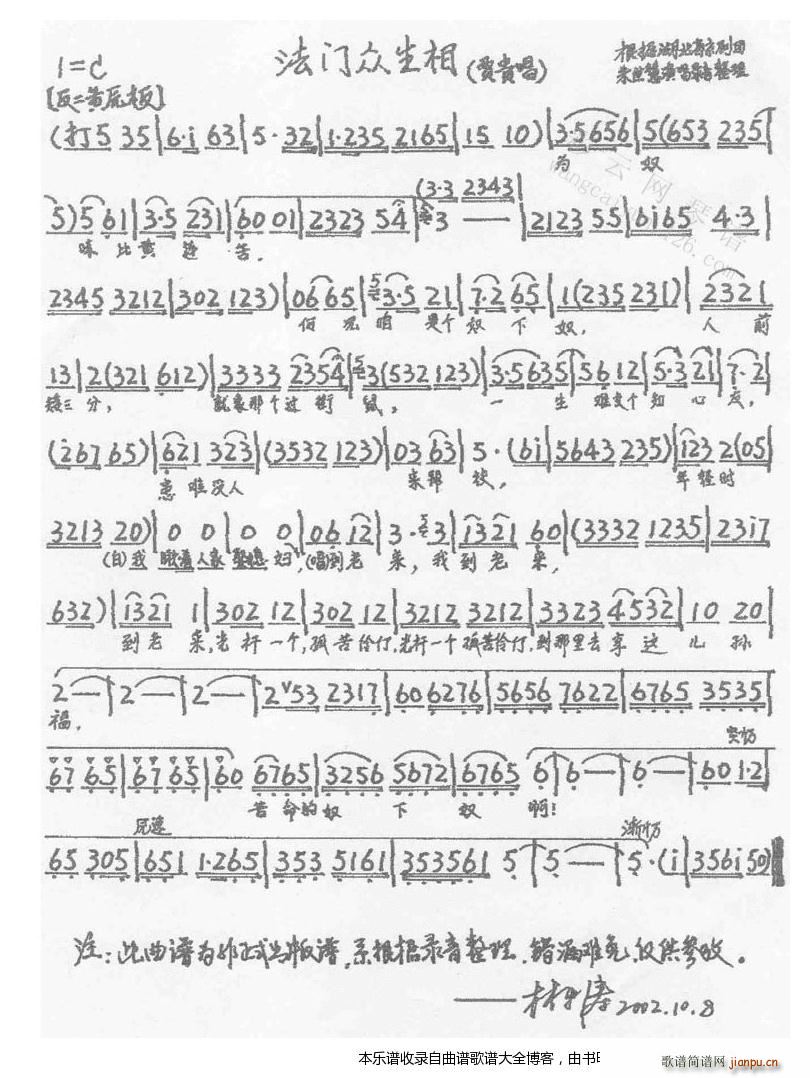 法门众生相(贾贵唱)
1=C
根据湖北省京剧团
朱世慧演唱录音整理
[反二黄原板]
(打5 35|6·i 63|5·32|1·235 2165|15 10)|3·5656|5(653 235|
为 奴
5)5 61|3·5 231|60 01|2323 54|3 — (3·3 2343|2123 55|6i65 4·3|
味比黄连苦,
2345 3212|302 123)|06 65|3·5 21|7·2 65|1(235 231)|2321
佰元咱是个奴下奴, 人前
13|2(321 612)|3333 2354|3(532 123)|3·5635|5612|5·321|7·2
矮三分, 就象那个过街鼠, 一生难交个知心友,
(2676 5)|621 323|(3532 123)|03 63|5·(6i|5643 235)|i23 2(05|
患难没人 来帮扶, 年轻时
3213 20)|0 0|0 0|06 12|3·3|1321 60|(3332 1235|2317
(白)我瞅着人家娶媳妇,(唱)到老来,我到老来,
632)|1321 1|302 12|302 12|3212 3212|3323 4532|10 20
到老来,光杆一个,孤苦伶仃,光杆一个孤苦伶仃,到那里去享这儿孙
2—|2—|2—|2ˇ53 2317|60 6276|5656 7622|6765 3535|
福,
突慢
67 65|67 65|60 6765|3256 5672|6765 6|6—|6—|60 1·2
苦命的奴下奴啊!
原速
渐慢
65 305|651 1·265|353 5161|353561 5|5—|5·(i|356i 50)‖
注:此曲谱为非正式出版谱,系根据录音整理,错漏难免,仅供参考。
2002.10.8
本乐谱收录自曲谱歌谱大全博客，由书
歌谱简谱网 jianpu.cn